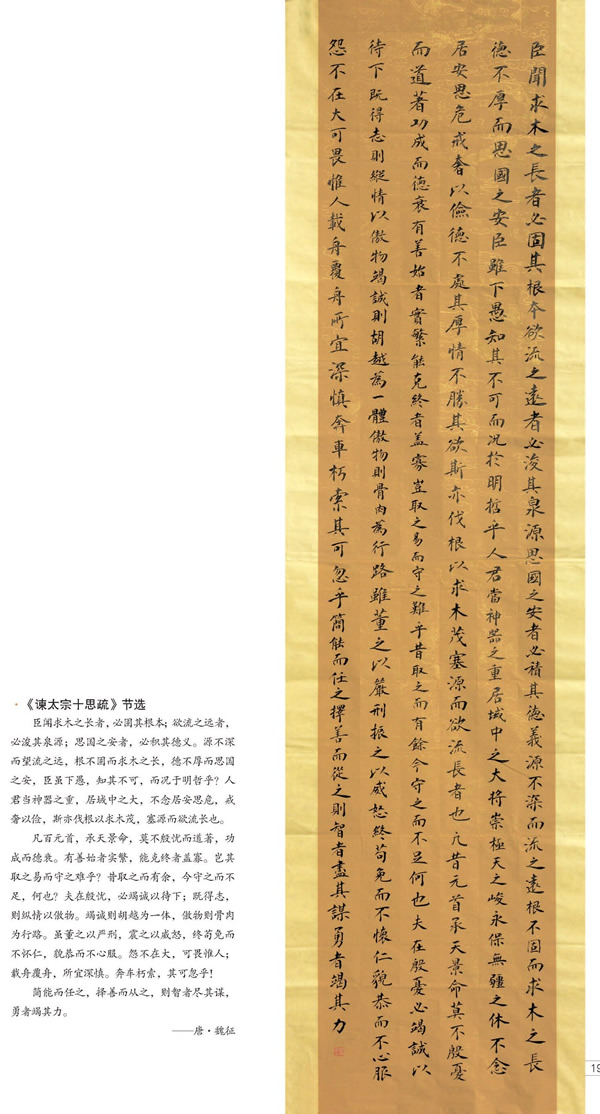 臣聞求木之長者必固其根本欲流之遠者必浚其泉源思國之安者必積其德義源不深而流之遠根不固而求木之長
德不厚而思國之安臣雖下愚知其不可而況於明哲乎人君當神器之重居域中之大將崇極天之峻永保無疆之休不念
居安思危戒奢以儉德不處其厚情不勝其欲斯亦伐根以求木茂塞源而欲流長者也凡昔元首承天景命莫不殷憂
而道著功成而德衰有善始者實繁能克終者盖寡豈取之易而守之難乎昔取之而有餘今守之而不足何也夫在殷憂必竭誠以
待下既得志則縱情以傲物竭誠則胡越為一體傲物則骨肉為行路雖董之以嚴刑振之以威怒終苟免而不懷仁貌恭而不心服
怨不在大可畏惟人載舟覆舟所宜深慎奔車朽索其可忽乎簡能而任之擇善而從之則智者盡其謀勇者竭其力
·《谏太宗十思疏》节选
臣闻求木之长者，必固其根本；欲流之远者，
必浚其泉源；思国之安者，必积其德义。源不深
而望流之远，根不固而求木之长，德不厚而思国
之安，臣虽下愚，知其不可，而况于明哲乎？人
君当神器之重，居域中之大，不念居安思危，戒
奢以俭，斯亦伐根以求木茂，塞源而欲流长也。
凡百元首，承天景命，莫不殷忧而道著，功
成而德衰。有善始者实繁，能克终者盖寡。岂其
取之易而守之难乎？昔取之而有余，今守之而不
足，何也？夫在殷忧，必竭诚以待下；既得志，
则纵情以傲物。竭诚则胡越为一体，傲物则骨肉
为行路。虽董之以严刑，震之以威怒，终苟免而
不怀仁，貌恭而不心服。怨不在大，可畏惟人；
载舟覆舟，所宜深慎。奔车朽索，其可忽乎！
简能而任之，择善而从之，则智者尽其谋，
勇者竭其力。
——唐·魏征
19